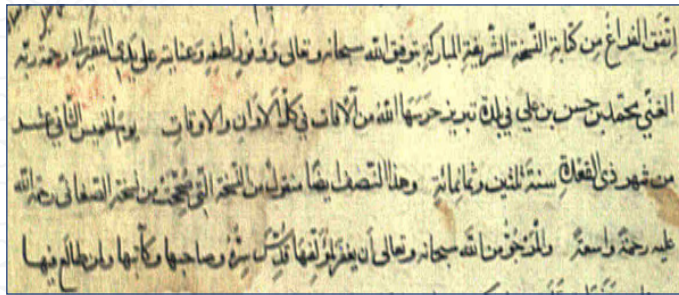 اتفق الفراغ من كتابة النسخة الشريفة المباركة بتوفيق الله سبحانه وتعالى ووفور لطفه وعنايته على يدي الفقير الى رحمة ربه
الغني محمد بن حسن بن علي في بلدة تبريز حرسها الله من الآفات في كل الاوان والاوقات يوم الخميس الثاني عشر
من شهر ذى القعدة سنة ثلثين وثمانمائة وهذا النصف ايضا منقول من النسخة التي صححت من نسخة الصغاني رحمة الله
عليه رحمة واسعة والمرجو من الله سبحانه وتعالى أن يغفر لمؤلفها قدس سره وصاحبها وكاتبها ولمن طالع فيها